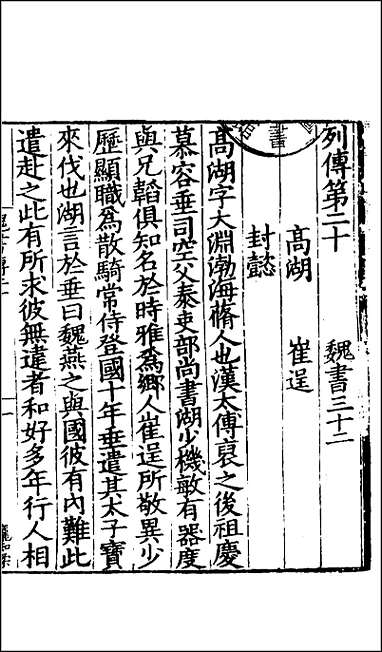 列傳第二十　魏書三十二
高湖　崔逞
封懿
高湖字大淵渤海蓨人也漢太傅裒之後祖慶
慕容垂司空父泰吏部尚書湖少機敏有器度
與兄韜俱知名於時雅爲鄉人崔逞所敬異少
歷顯職爲散騎常侍登國十年垂遣其太子寶
來伐也湖言於垂曰魏燕之與國彼有內難此
遣赴之此有所求彼無違者和好多年行人相